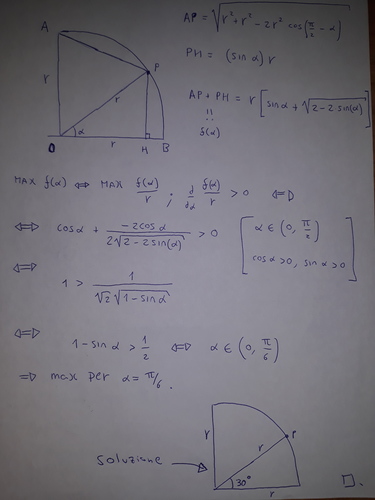 A
r
r
P
α
O
r
H
B
AP = √(r² + r² - 2r² cos(π/2 - α))
PH = (sin α) r
AP + PH = r [sin α + √(2 - 2 sin(α))]
!!
f(α)
MAX f(α) ⇔ MAX f(α)/r ; d/dα f(α)/r > 0 ⇔
⇔ cos α + (-2cos α)/(2√(2 - 2sin(α))) > 0 [α ∈ (0, π/2)
cos α > 0, sin α > 0]
⇔ 1 > 1/(√2 √(1 - sin α))
⇔ 1 - sin α > 1/2 ⇔ α ∈ (0, π/6)
⇒ max per α = π/6.
r
r
P
soluzione →
30°
r
□.